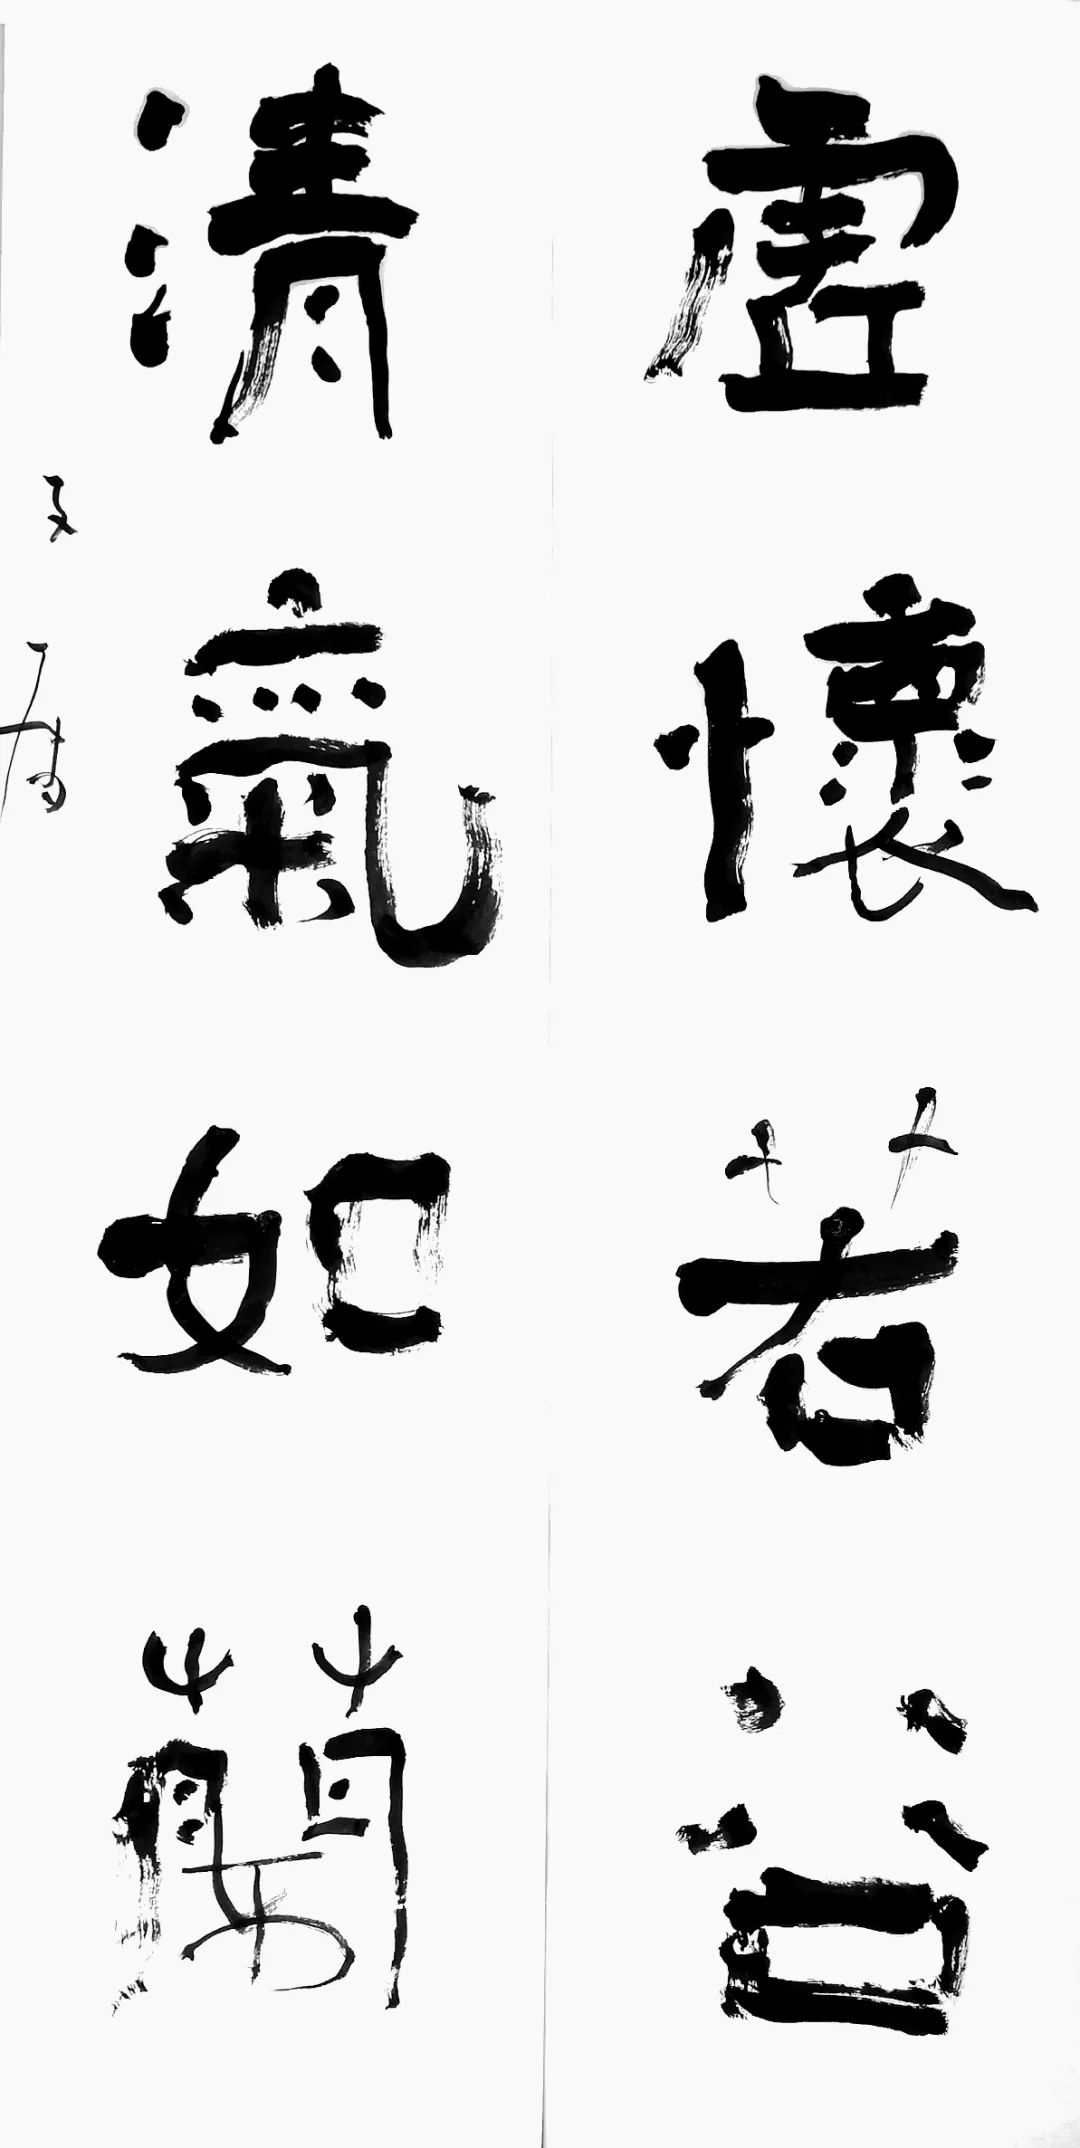 虛懷若谷
清氣如蘭